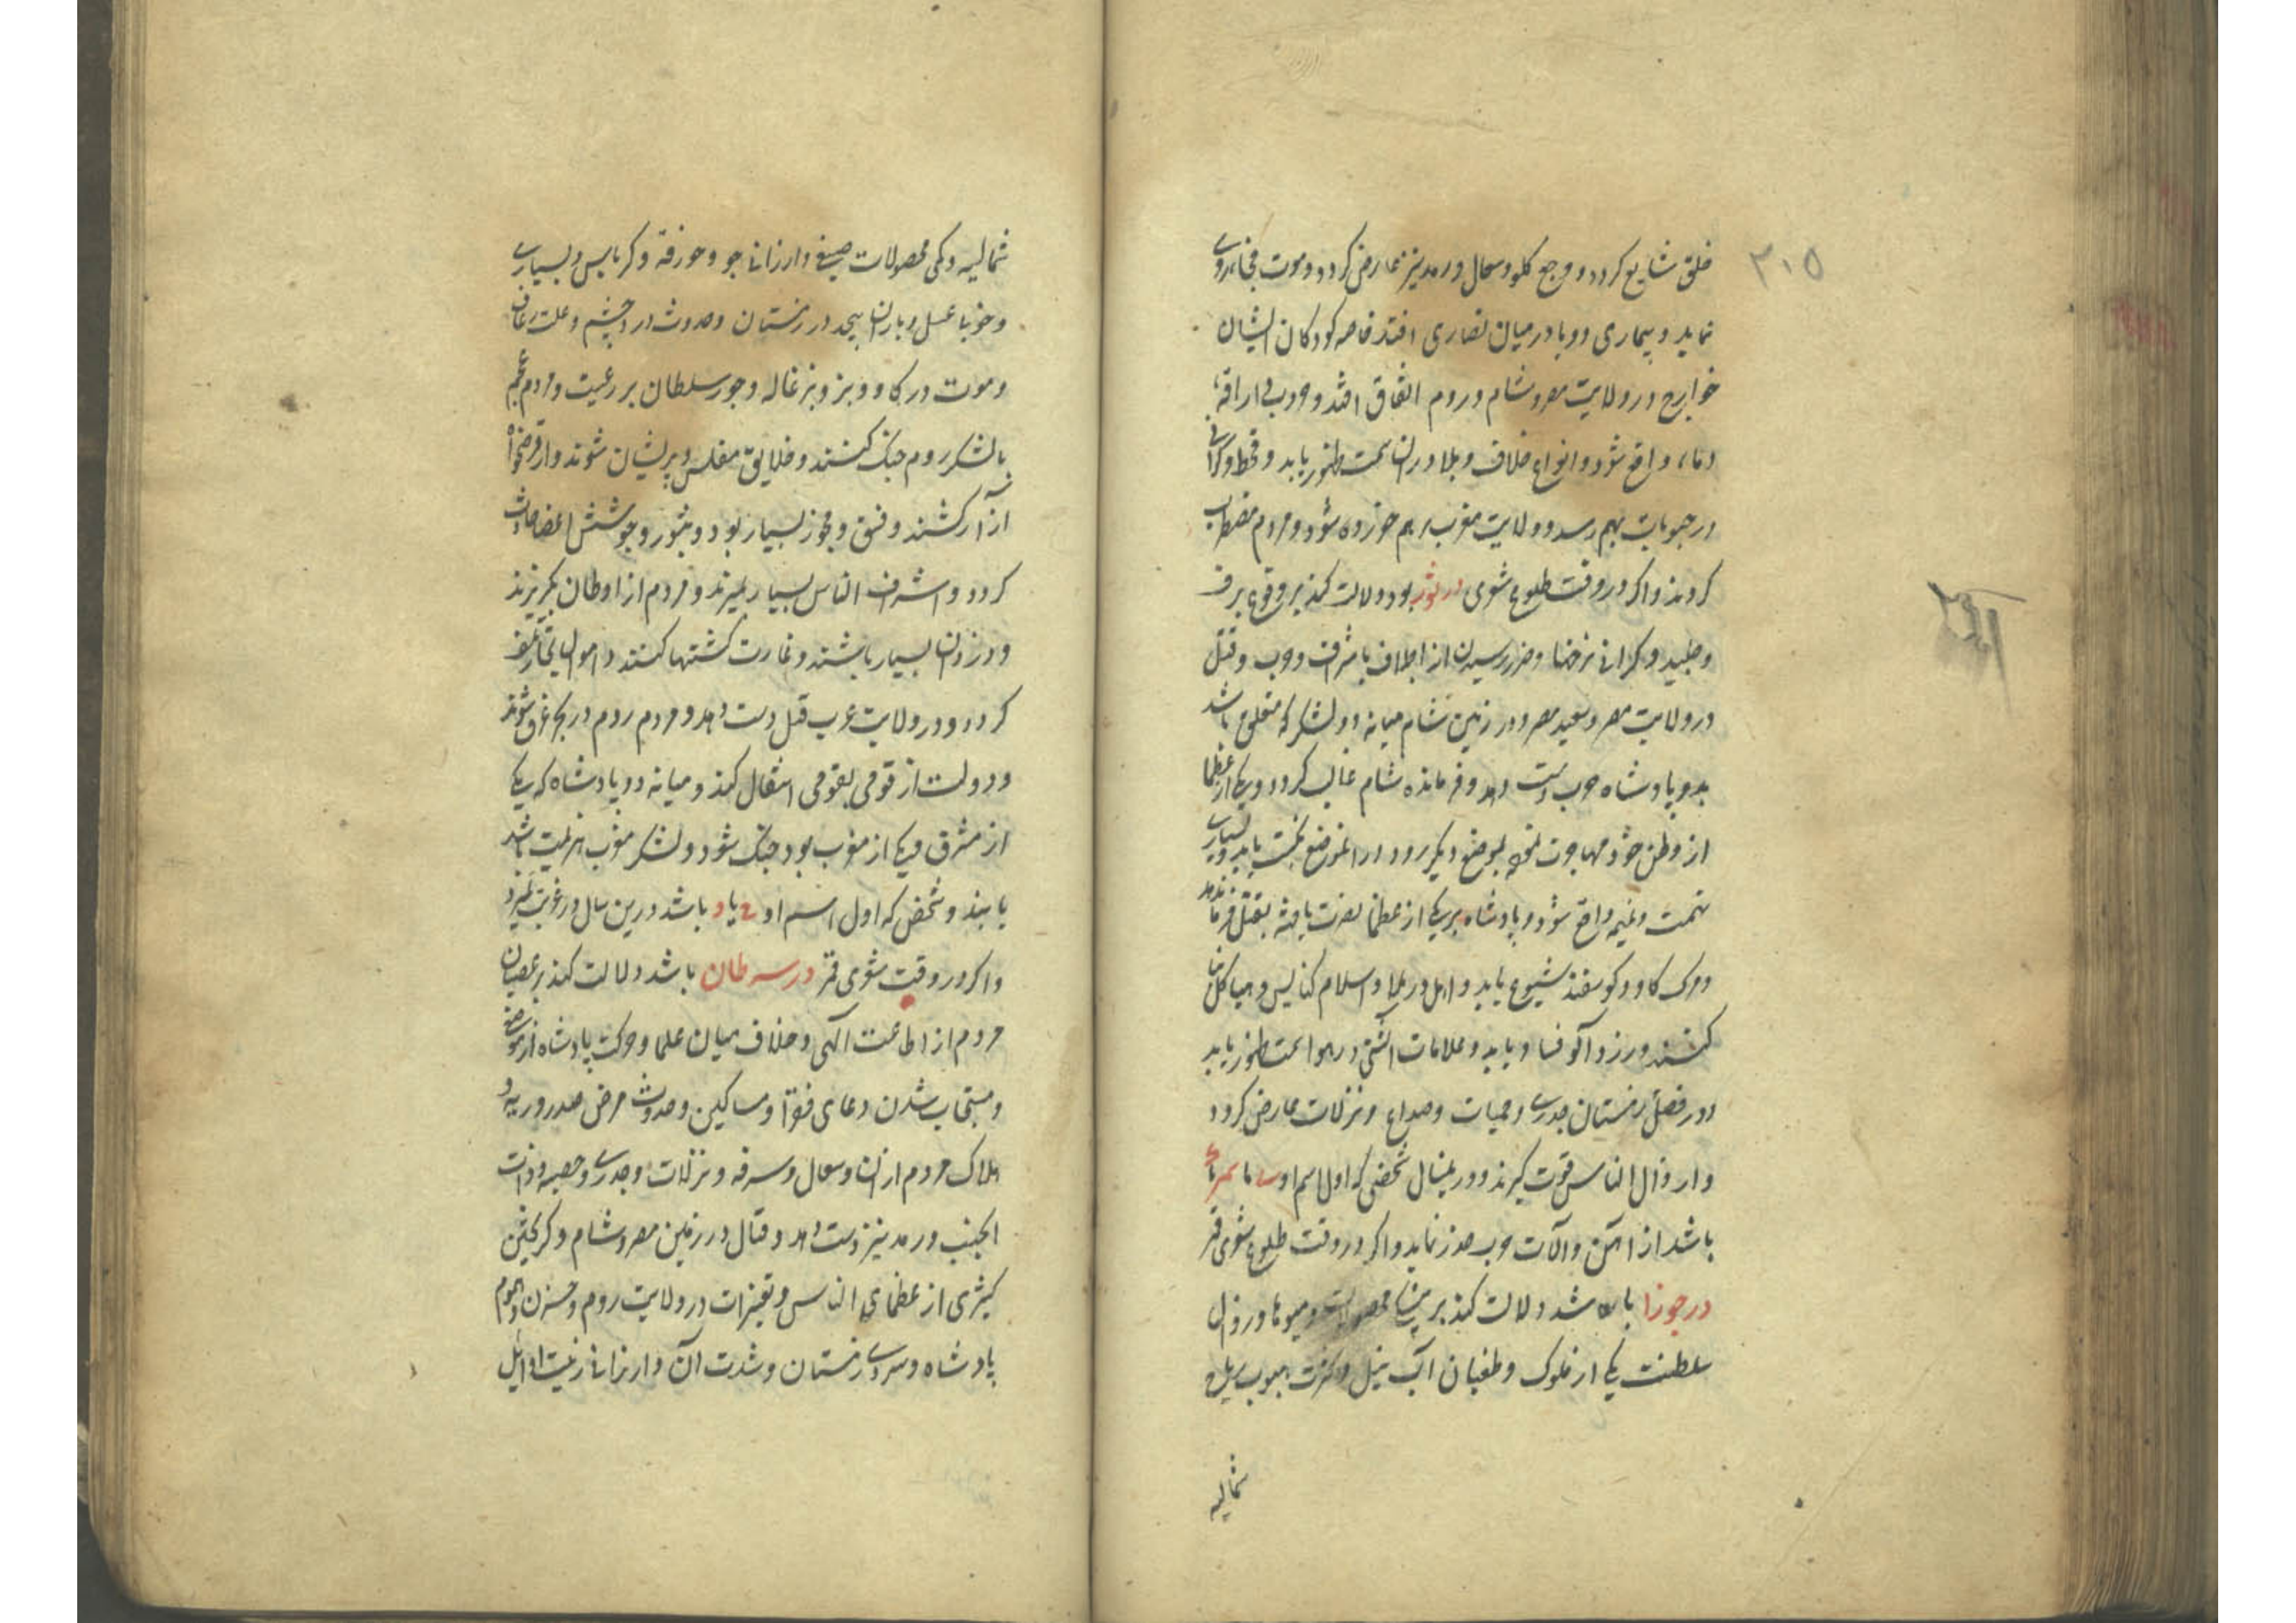 ۳۰۵
خلق شایع کردد و وجع کلو و سعال و رمد نیز عارض کردد و موت فجا روی
نماید و بیماری و وبا در میان نصاری افتد خاصه کودکان ایشان
خوارج در ولایت مصر و شام و روم اتفاق افتد و حرب بی اراقهٔ
دماء واقع شود و انواع خلاف و بلا در ان سمت ظهور یابد و قحط و کرانی
در حبوبات بهم رسد و ولایت مغرب بر هم خورده شود و مردم مضطرب
کردند و اکر در وقت طلوع شعری در ثور بود دلالت کند بر وقوع برف
و جلید و کرانی نرخها و ضرر رسیدن از اجلاف باشراف و حرب و قتل
در ولایت مصر و سعید مصر و در زمین شام میانه دو لشکر که متعلق باشد
بدو پادشاه حرب دست دهد و فرمانده شام غالب کردد و یکی از عظما
از وطن خود مهاجرت نموده بموضع دیکر رود و در انموضع نکبت یابد و بسیاری
تهمت و غیره واقع شود و پادشاه بر یکی از عظما نصرت یافته بقتل فرماندهد
و مرک کاو و کوسفند شیوع یابد و اهل در بلاد اسلام کنایس و هیاکل بنا
کنند و رز و آلو فساد یابد و علامات آتشی در هوا سمت ظهور یابد
و در فصل زمستان جدری و حمیات و صداع و نزلات عارض کردد
و ارذال الناس قوت کیرند و در اینسال شخصی که اول اسم او
باشد از آهن و آلات حرب حذر نماید و اکر در وقت طلوع شعری قمر
در جوزا باشد دلالت کند بر محصولات و میوها و زوال
سلطنت یکی از ملوک و طغیان آب نیل و کثرت هبوب ریاح
شمالیه
شمالیه و کمی محصولات صیفی و ارزانی جو و خورفه و کرباس و بسیاری
و خوبا عسل و باران بیحد در زمستان و حدوث درد چشم و علت رعاف
و موت در کاو و بز و بزغاله و جور سلطان بر رعیت و مردم عجم
بالشکر روم جنک کنند و خلایق مفلس و پریشان شوند و از قرضخواه
آزار کشند و فسق و فجور بسیار بود و بثور و جوشش اعضا حادث
کردد و اشراف الناس بسیار بمیرند و مردم از اوطان بکریزند
و دزدان بسیار باشند و غارت کشتیها کنند و اموال تجار تلف
کردد و در ولایت عرب قتل دست دهد و مردم روم در بحر غرق شوند
و دولت از قومی بقومی انتقال کند و میانه دو پادشاه که یکی
از مشرق و یکی از مغرب بود جنک شود و لشکر مغرب هزیمت باشد
یابند و شخصی که اول اسم او ع یا د باشد درین سال در غربت بمیرد
و اکر در وقت شعری قمر در سرطان باشد دلالت کند بر عصیان
مردم از اطاعت الهی و خلاف میان علما و حرکت پادشاه از موضع
و مستجاب شدن دعای فقرا و مساکین و حدوث مرض صدر و ریه و
هلاک مردم از ان و سعال و سرفه و نزلات و جدری و حصبه و ذات
الجنب و رمد نیز دست دهد و قتال در زمین مصر و شام و کریختن
کثیری از عظمای الناس و تغیرات در ولایت روم و حزن و هموم
پادشاه و سردی زمستان و شدت آن و ارزانی زیت اوایل